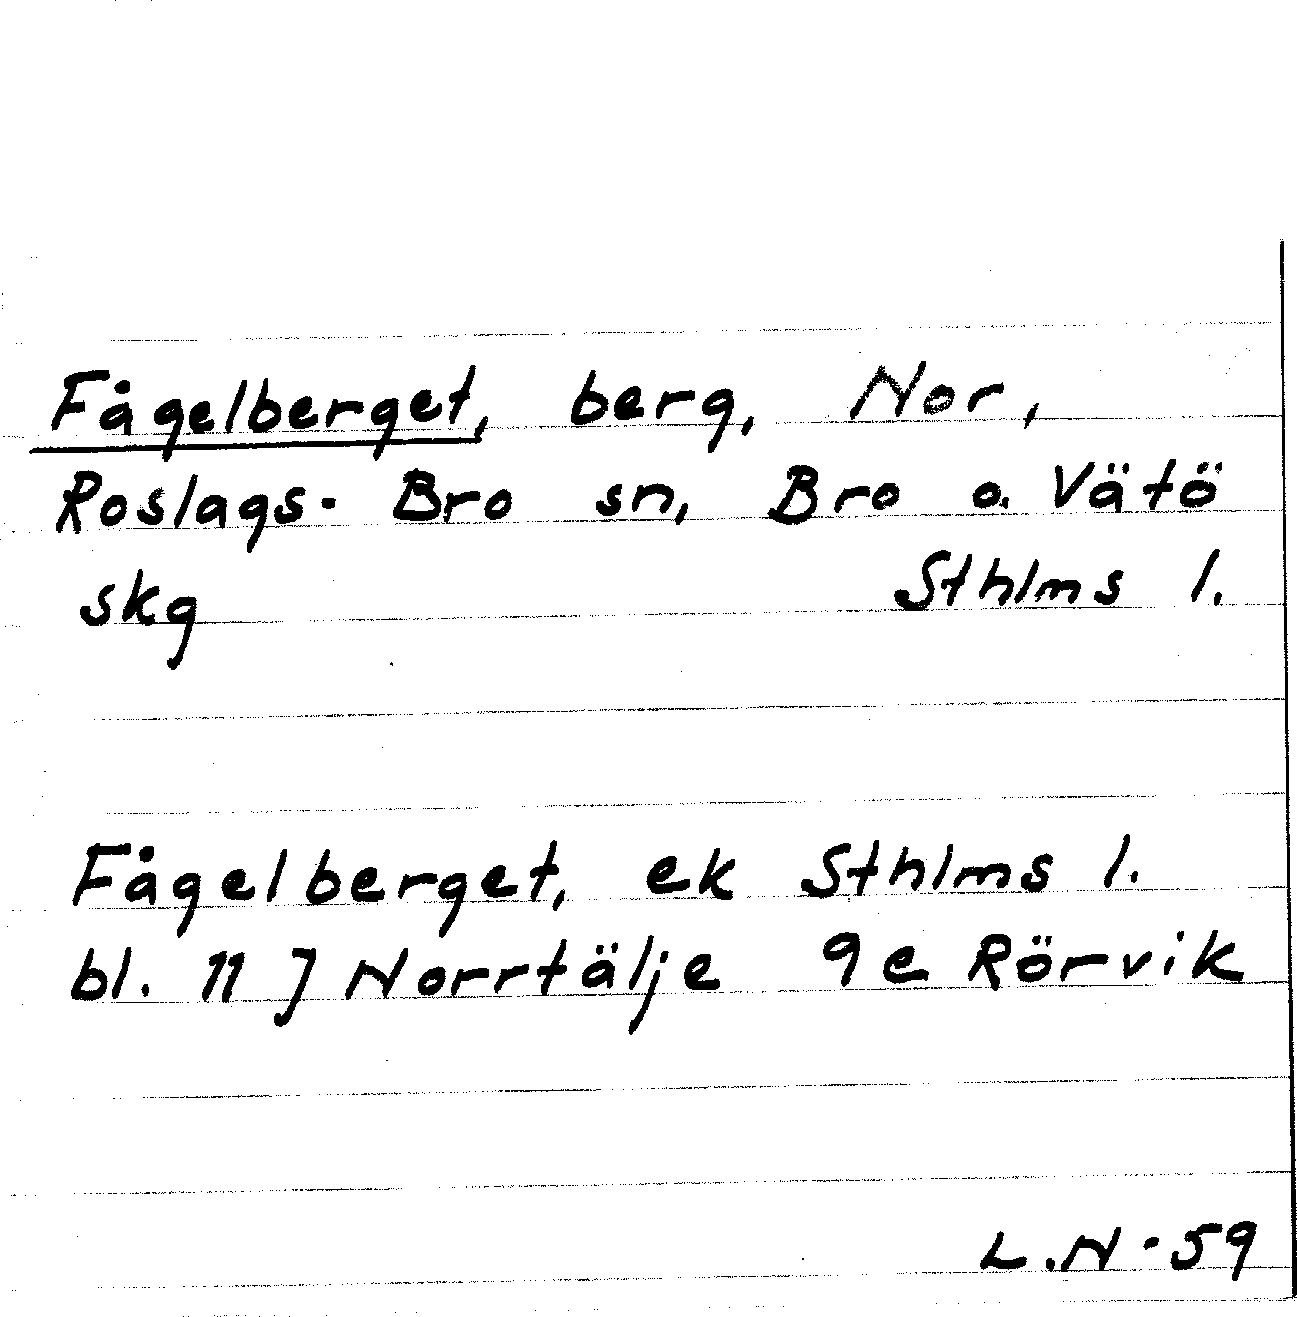 Fågelberget, berg, Nor,
Roslags-Bro sn, Bro o. Vätö
skg Sthlms l.
Fågelberget, ek Sthlms l.
bl. 11 J Norrtälje 9e Rörvik
L.N-59